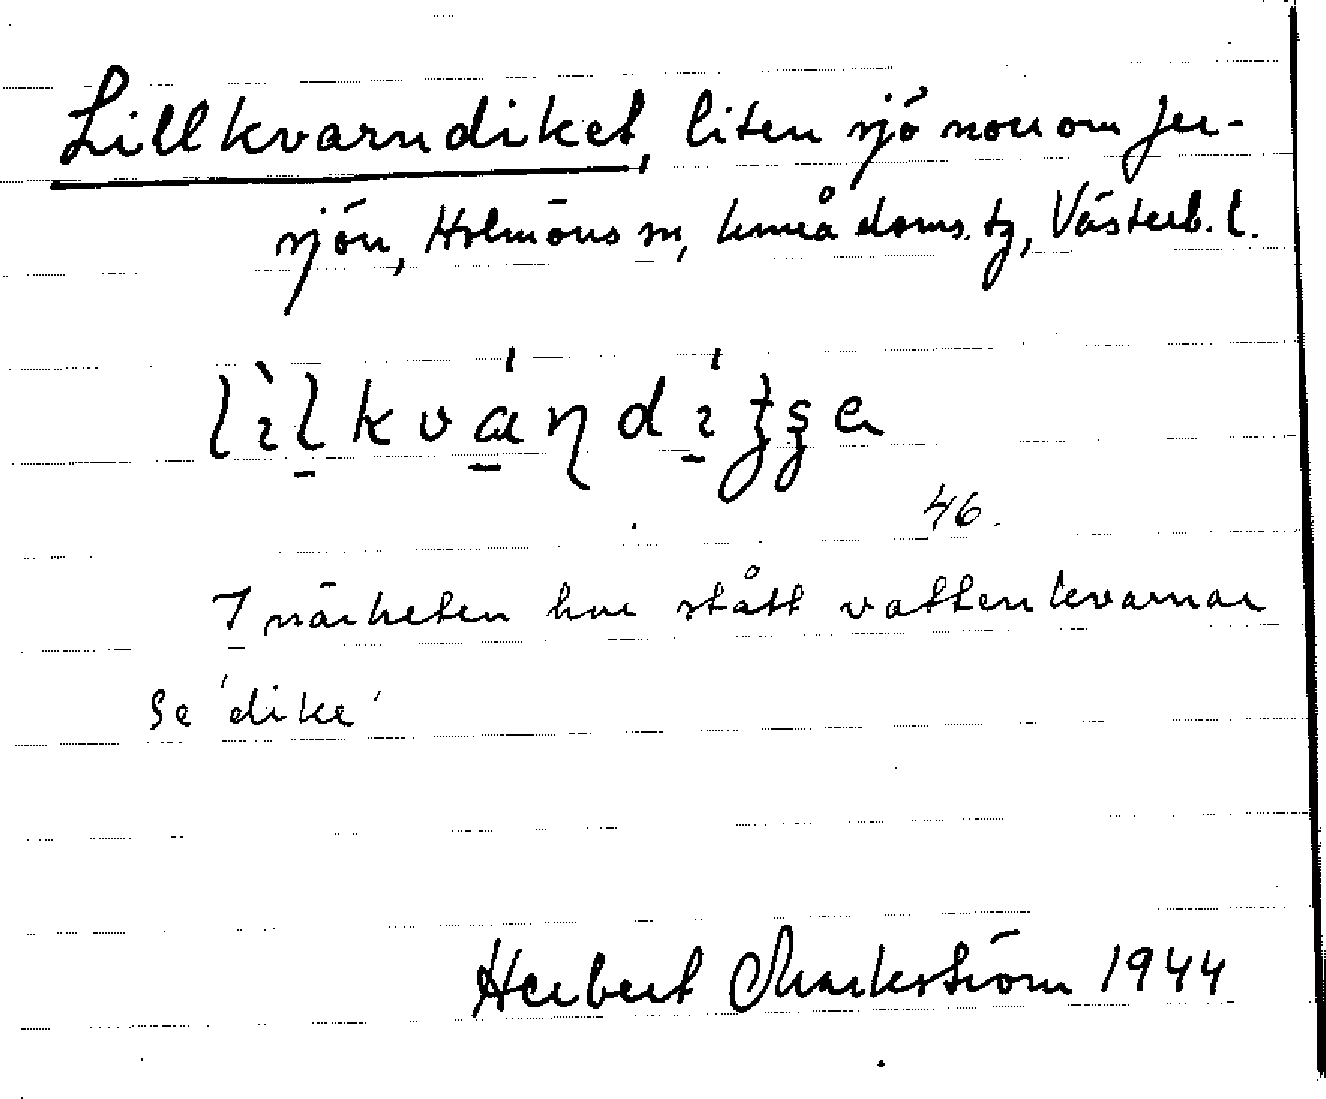 Lillkvarndiket, liten sjö norr om Jer-
sjön, Holmöns sn, Umeå doms. tg, Västerb. l.
46.
I närheten har stått vattenkvarnar
Se 'dike'
Herbert Markström 1944